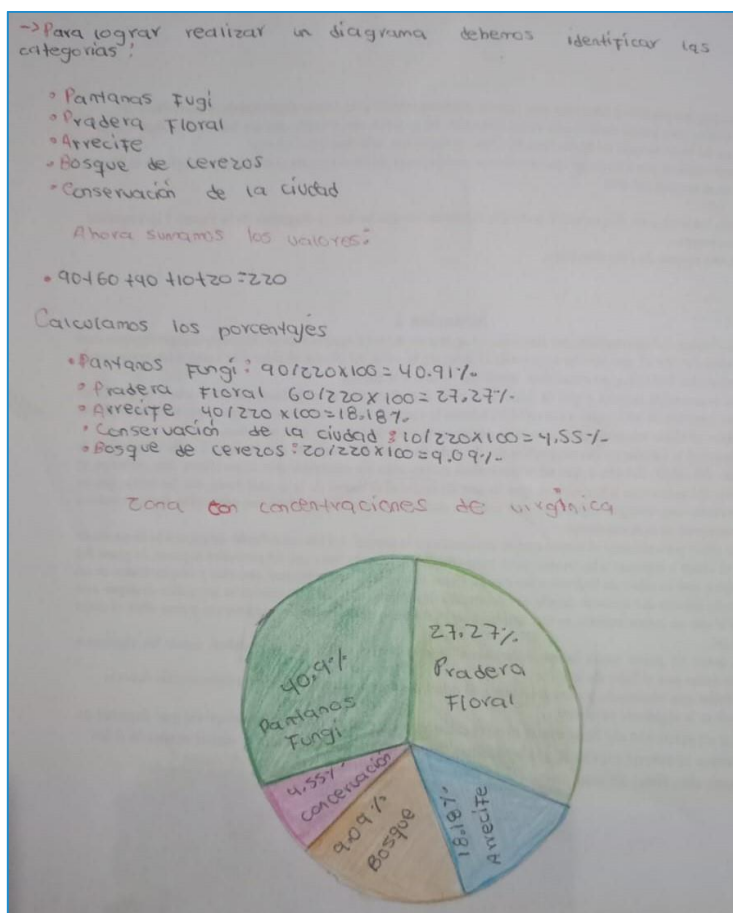 ->Para lograr realizar un diagrama debemos identificar las
categorías:
• Pantanas Fugi
• Pradera Floral
• Arrecife
• Bosque de cerezos
• Conservación de la ciudad
Ahora sumamos los valores:
• 90+60+40+10+20=220
Calculamos los porcentajes
• Pantanos Fungi: 90/220x100=40.91%
• Pradera Floral 60/220x100=27,27%
• Arrecife 40/220x100=18.18%
• Conservación de la ciudad: 10/220x100=4,55%
• Bosque de cerezos: 20/220x100=9.09%
Zona con concentraciones de virginica
27.27%
Pradera
Floral
40,9%
Pantanos
Fungi
4.55%
concervación
9.09%
Bosque
18.18%
Arrecife